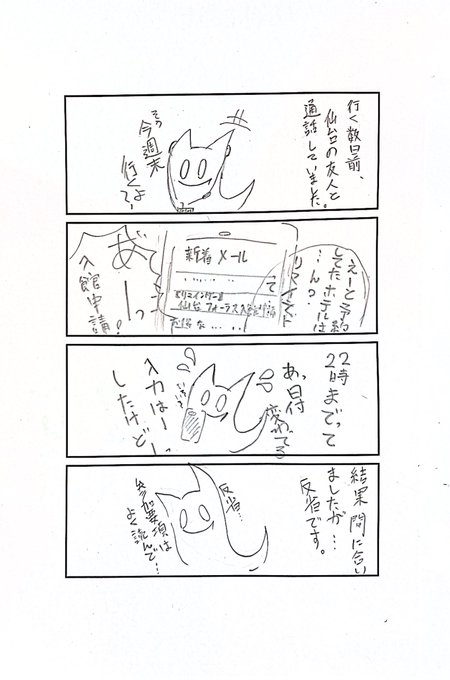 行く数日前、
仙台の友人と
通話していました。
今週末
行くよ
えーと予約
してたホテルは
…ん？
新着メール
リマインダー
仙台フォーラス入館申請
あ
ーっ
入館申請！
22時までって
あっ日付
変わってる
入力はー
したけどー
結果間に合い
ましたが…
反省です。
反省…
参加要項は
よく読んで…